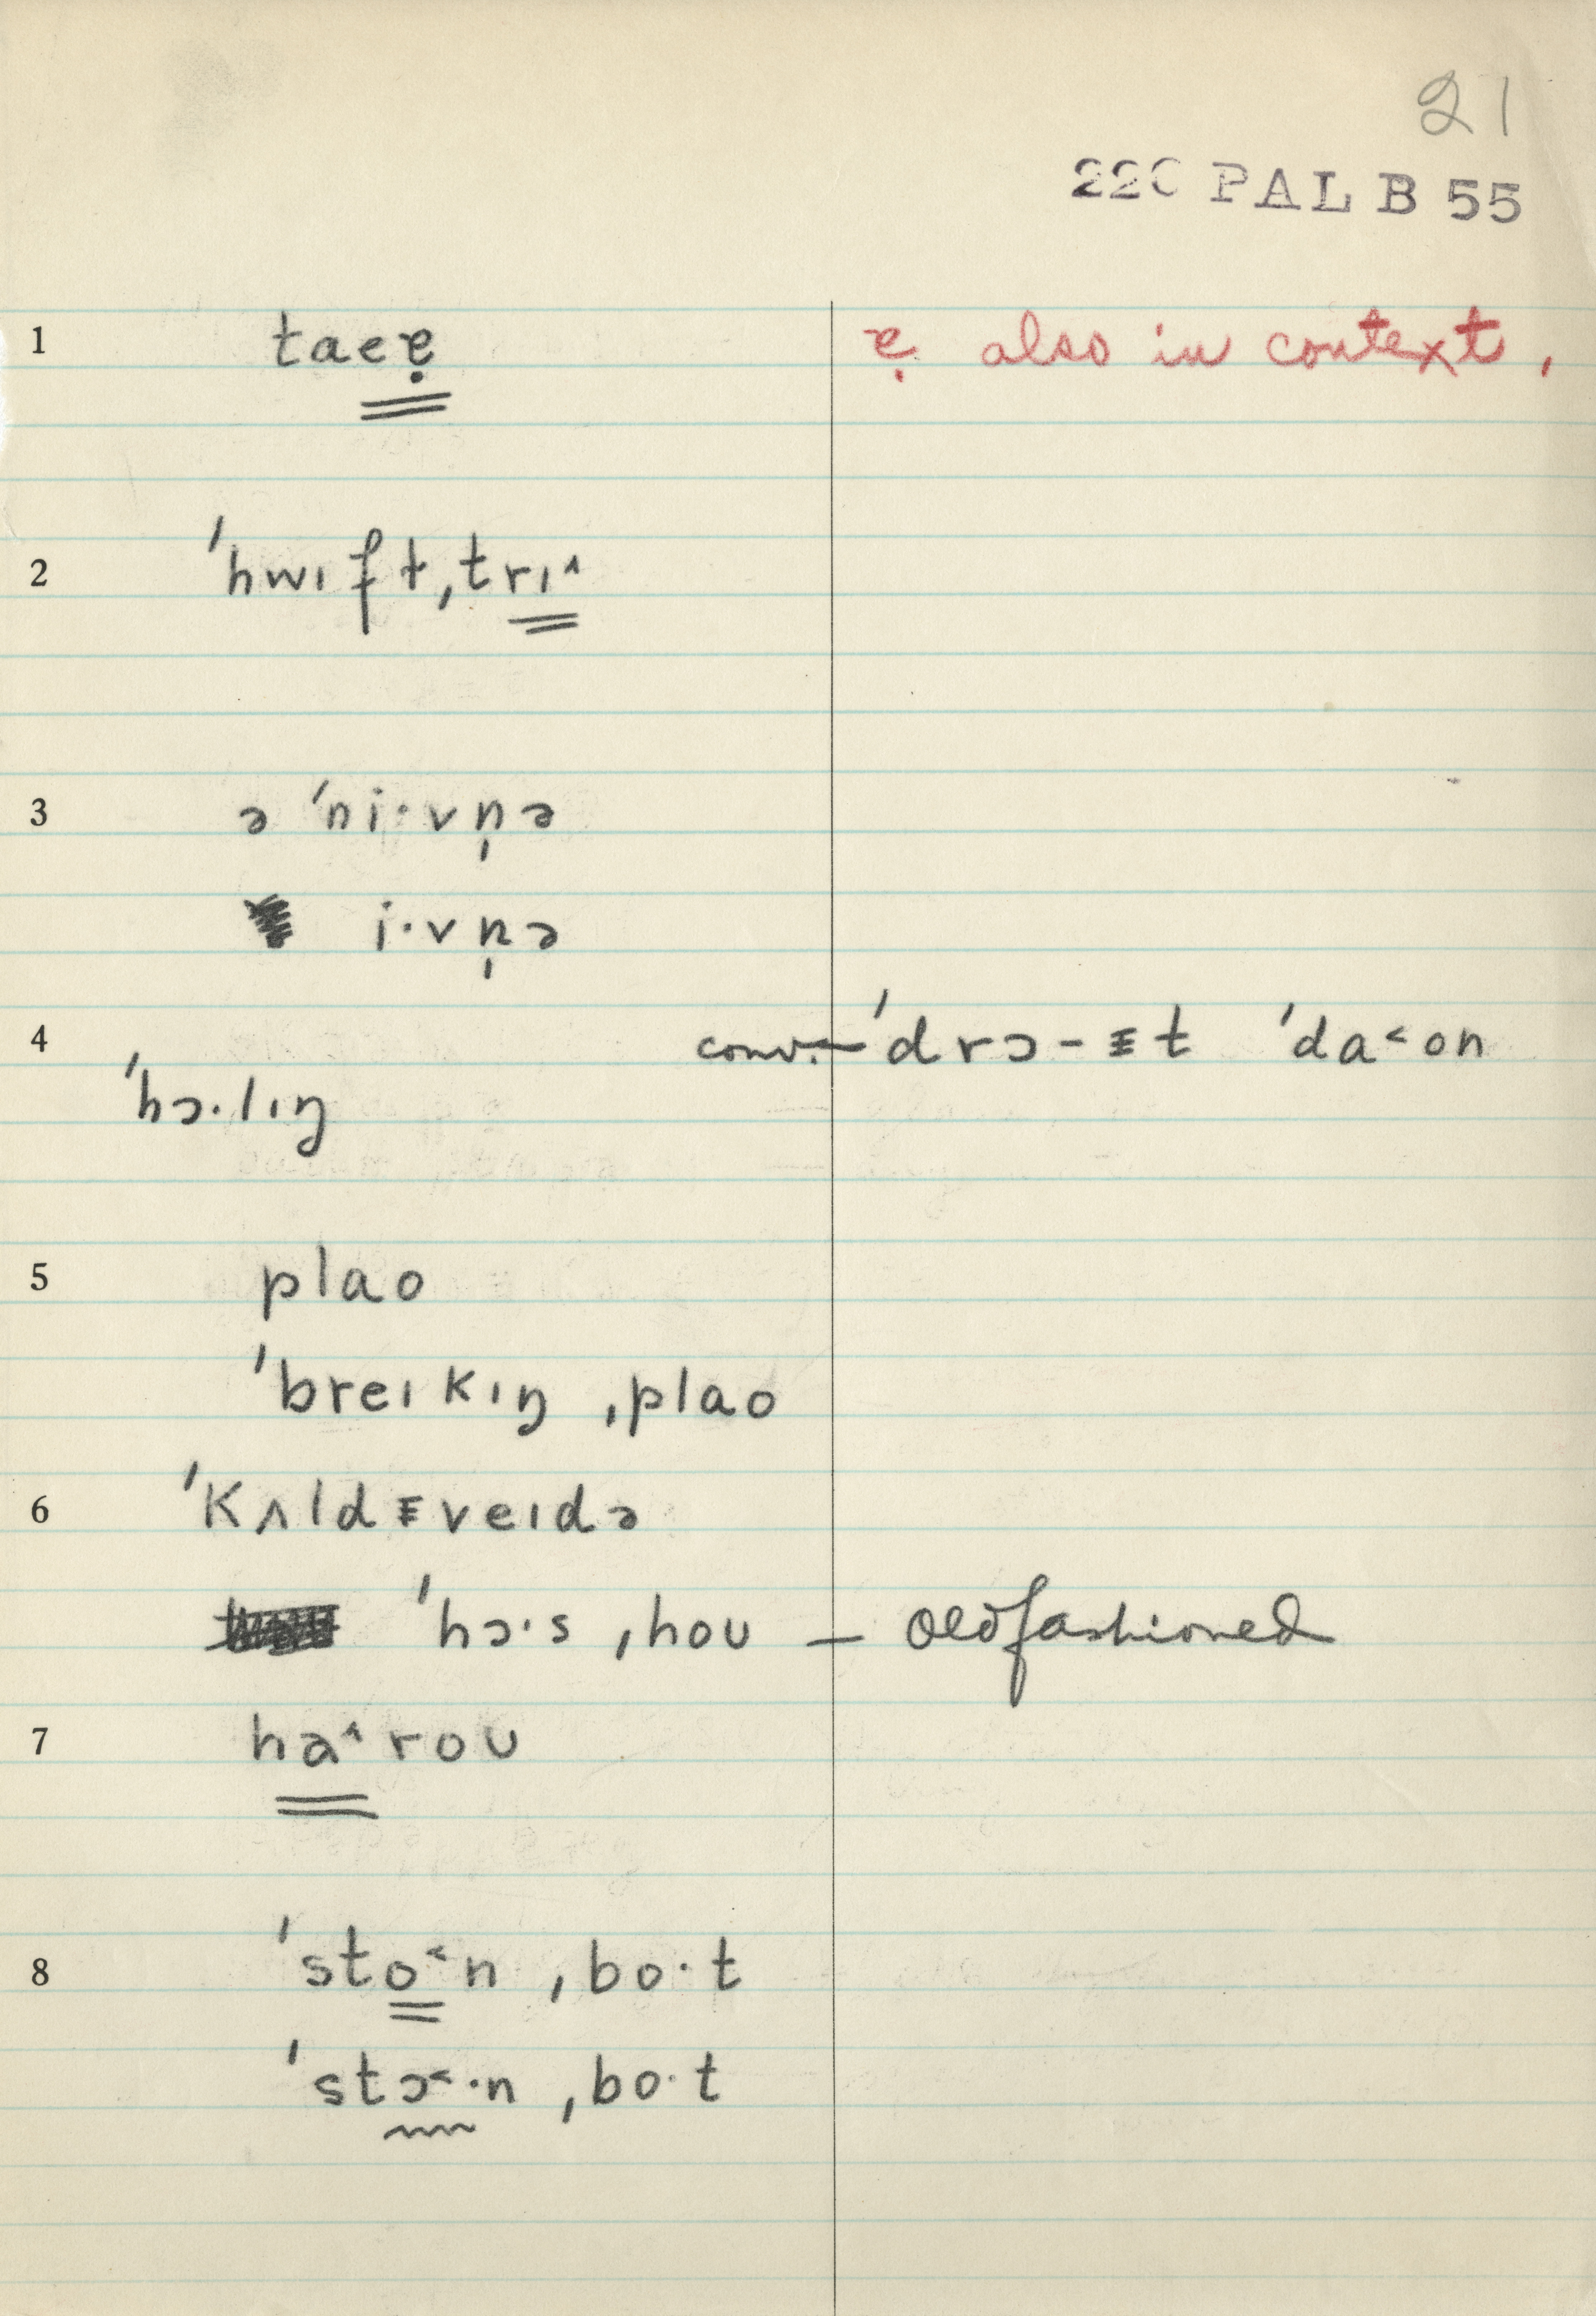 21
220 PAL B 55
1 taeɐ̣ ɐ̣ also in context,
2 ˈhwɪft ˌtrɪ˄
3 ə ˈni·vn̩ə
i·vn̩ə
4 conv. — ˈdrɔ-ᵻt ˈda˂on
ˈhɔ·lɪŋ
5 plao
ˈbreɪkɪŋ ˌplao
6 ˈkʌldᵻveɪdə
ˈhɔ·s ˌhoʊ — oldfashioned
7 ha˄roʊ
8 ˈsto˂n ˌbo·t
ˈstɔ˂·n ˌbo·t